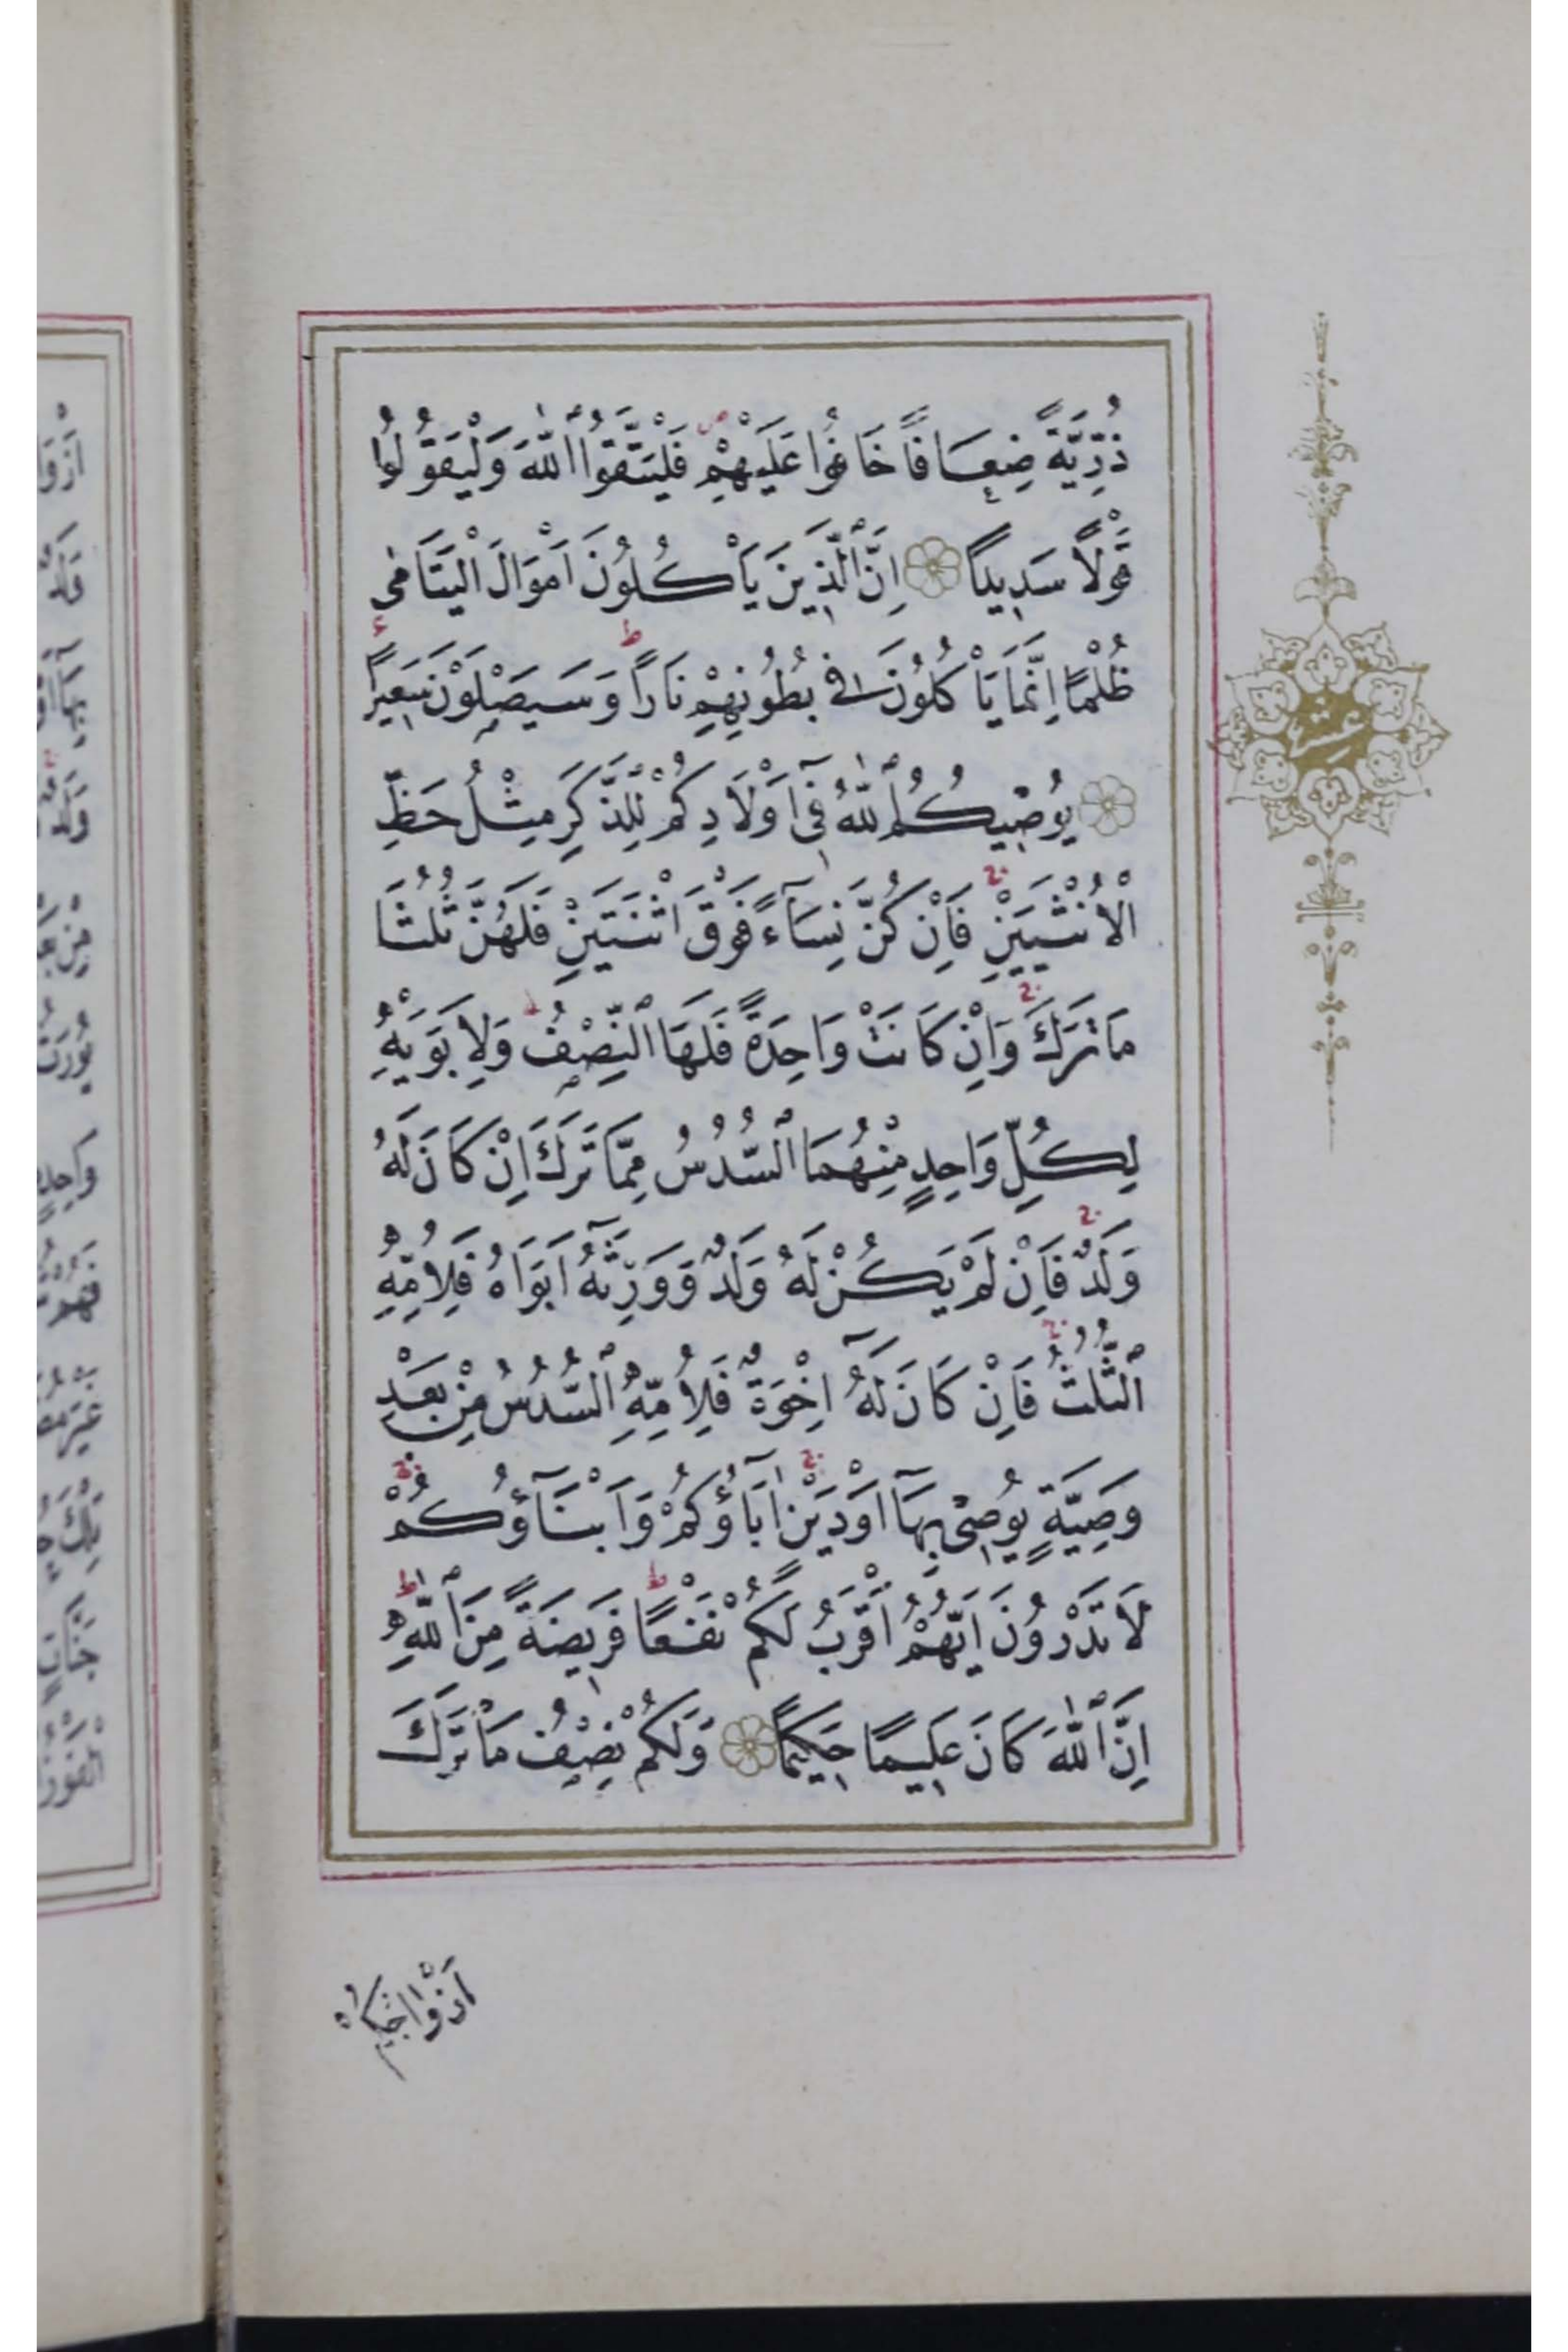 ذُرِّيَّةً ضِعَافًا خَافُوا عَلَيْهِمْ فَلْيَتَّقُوا اللّٰهَ وَلْيَقُولُوا
قَوْلًا سَدِيدًا اِنَّ الَّذِينَ يَأْكُلُونَ اَمْوَالَ الْيَتَامٰى
ظُلْمًا اِنَّمَا يَأْكُلُونَ فِى بُطُونِهِمْ نَارًا وَسَيَصْلَوْنَ سَعِيرًا
يُوصِيكُمُ اللّٰهُ فِٓى اَوْلَادِكُمْ لِلذَّكَرِ مِثْلُ حَظِّ
الْاُنْثَيَيْنِ فَاِنْ كُنَّ نِسَٓاءً فَوْقَ اثْنَتَيْنِ فَلَهُنَّ ثُلُثَا
مَا تَرَكَ وَاِنْ كَانَتْ وَاحِدَةً فَلَهَا النِّصْفُ وَلِاَبَوَيْهِ
لِكُلِّ وَاحِدٍ مِنْهُمَا السُّدُسُ مِمَّا تَرَكَ اِنْ كَانَ لَهُ
وَلَدٌ فَاِنْ لَمْ يَكُنْ لَهُ وَلَدٌ وَوَرِثَهُٓ اَبَوَاهُ فَلِاُمِّهِ
الثُّلُثُ فَاِنْ كَانَ لَهُٓ اِخْوَةٌ فَلِاُمِّهِ السُّدُسُ مِنْ بَعْدِ
وَصِيَّةٍ يُوصِى بِهَٓا اَوْ دَيْنٍ اٰبَٓاؤُكُمْ وَاَبْنَٓاؤُكُمْ
لَا تَدْرُونَ اَيُّهُمْ اَقْرَبُ لَكُمْ نَفْعًا فَرِيضَةً مِنَ اللّٰهِ
اِنَّ اللّٰهَ كَانَ عَلِيمًا حَكِيمًا وَلَكُمْ نِصْفُ مَا تَرَكَ
اَزْوَاجُكُمْ